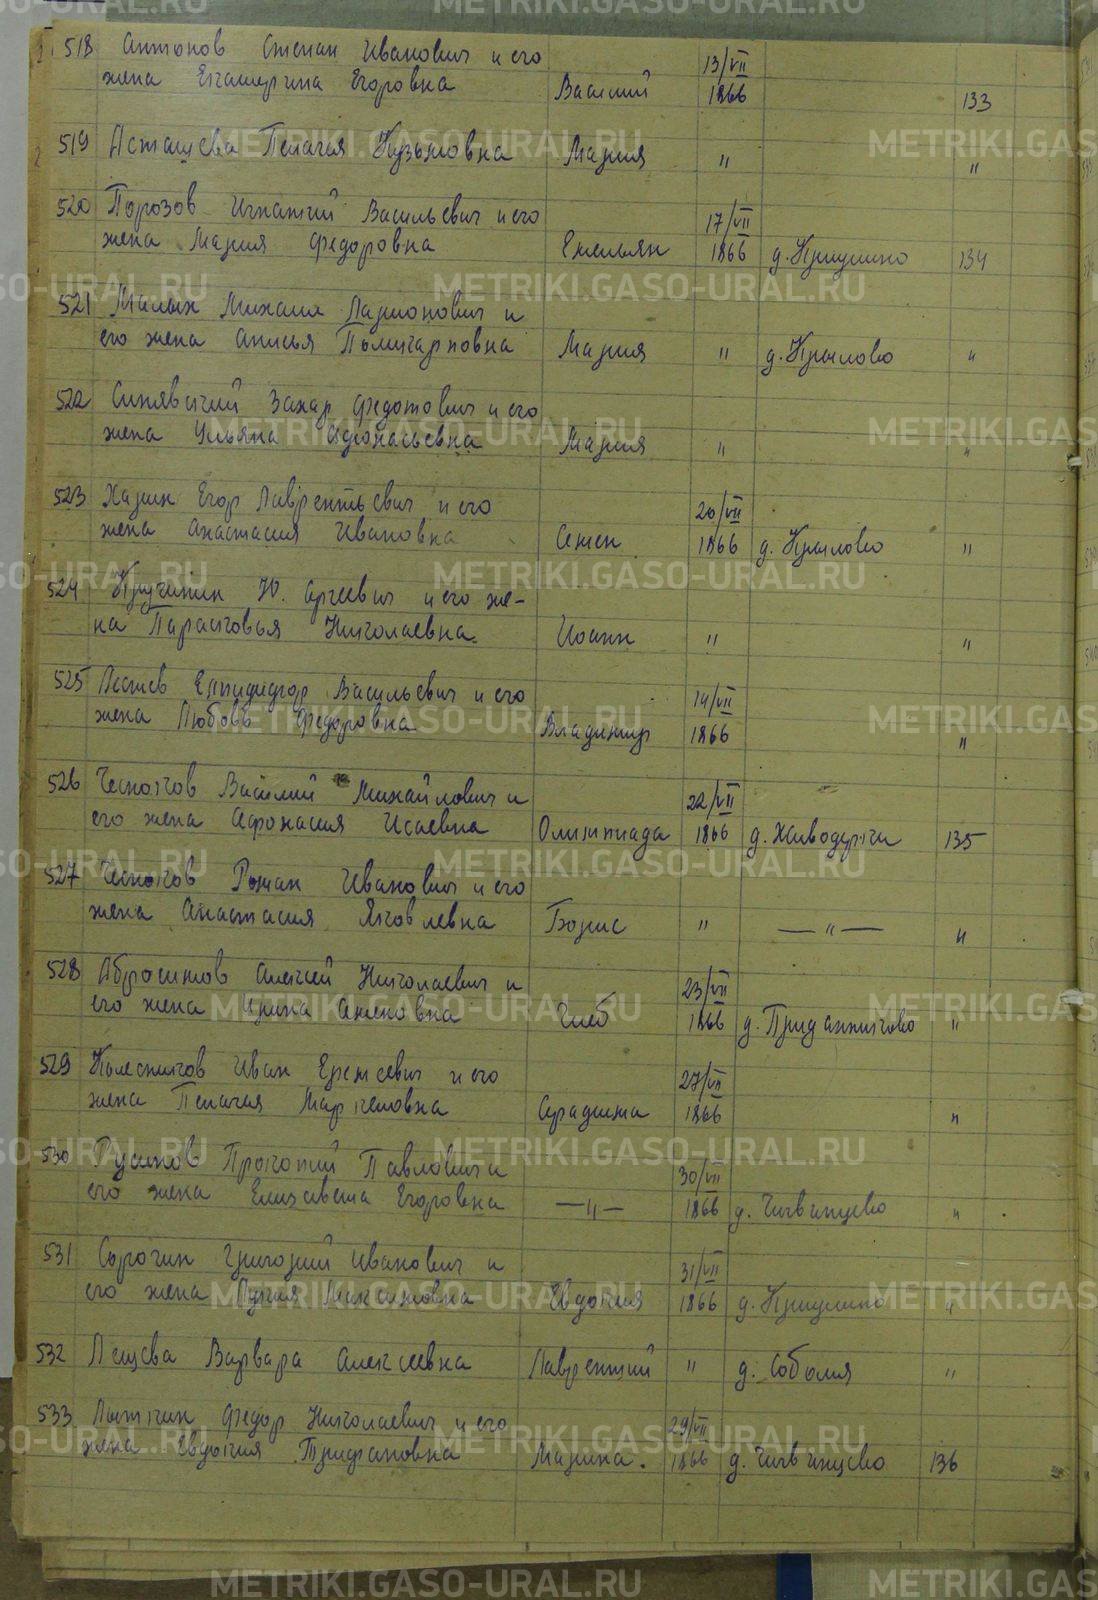 518 Антонов Степан Иванович и его
жена Екатерина Егоровна Василий 13/VII 1866 133
519 Асташева Пелагея Кузьмовна Мария " "
520 Порозов Игнатий Васильевич и его
жена Мария Федоровна Емельян 17/VII 1866 д. Криулино 134
521 Малых Михаил Ларионович и
его жена Анисья Поликарповна Мария " д. Крылово "
522 Синявский Захар Федотович и его
жена Ульяна Афонасьевна Мария " "
523 Харин Егор Лаврентьевич и его
жена Анастасия Ивановна Семен 20/VII 1866 д. Крылово "
524 Кручинин Ю. Сергеевич и его же-
на Парасковья Николаевна. Иоанн " "
525 Елпидифор Васильевич и его
жена Любовь Федоровна Владимир 14/VII 1866 "
526 Чесноков Василий Михайлович и
его жена Афонасия Исаевна Олимпиада 22/VII 1866 д. Живодерка 135
527 Чесноков Роман Иванович и его
жена Анастасия Яковлевна Борис " — " — "
528 Абросимов Алексей Николаевич и
его жена Ирина Семеновна Глеб 23/VII 1866 д. Приданниково "
529 Колесников Иван Еремеевич и его
жена Пелагея Маркеловна Серафима 27/VII 1866 "
530 Русинов Прокопий Павлович и
его жена Елизавета Егоровна — " — 30/VII 1866 д. Чигвинцево "
531 Сорокин Григорий Иванович и
его жена Лукия Максимовна Евдокия 31/VII 1866 д. Криулино "
532 Лещева Варвара Алексеевна Лаврентий " д. Соболя "
533 Лыткин Федор Николаевич и его
жена Евдокия Трифановна Марина. 29/VII 1866 д. Чигвинцево 136
METRIKI.GASO-URAL.RU